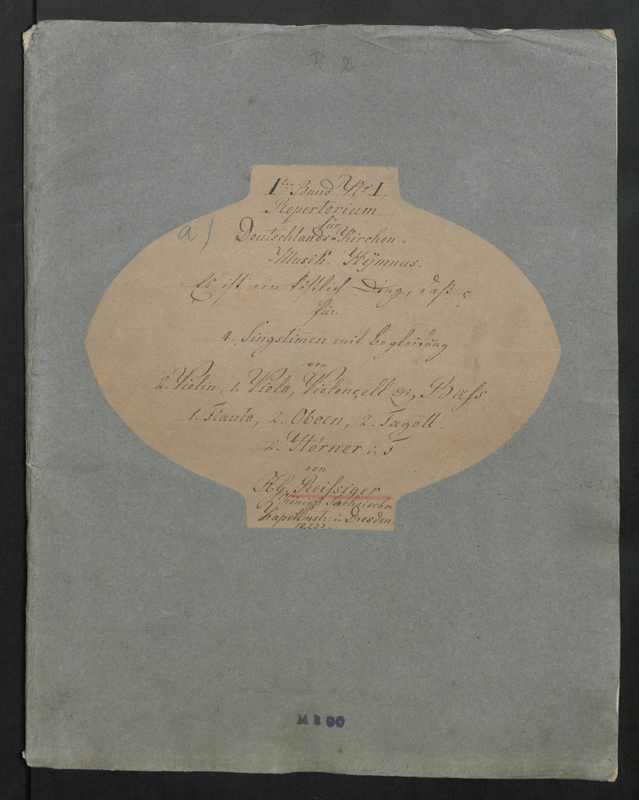 R 2
Iter Band No. I.
Repertorium
für
a) Deutschlands-Kirchen-
Musik. Hÿmnus.
Es ist ein köstlich Ding, daß
für
4. Singstimen mit Begleitung
von
2. Violin, 1. Viola, Violoncell Bass
1. Flauto, 2. Oboen, 2. Fagott.
2. Hörner in F
von
Reissiger
Königl. Sächsischer
Kapellmstr. in Dresden.